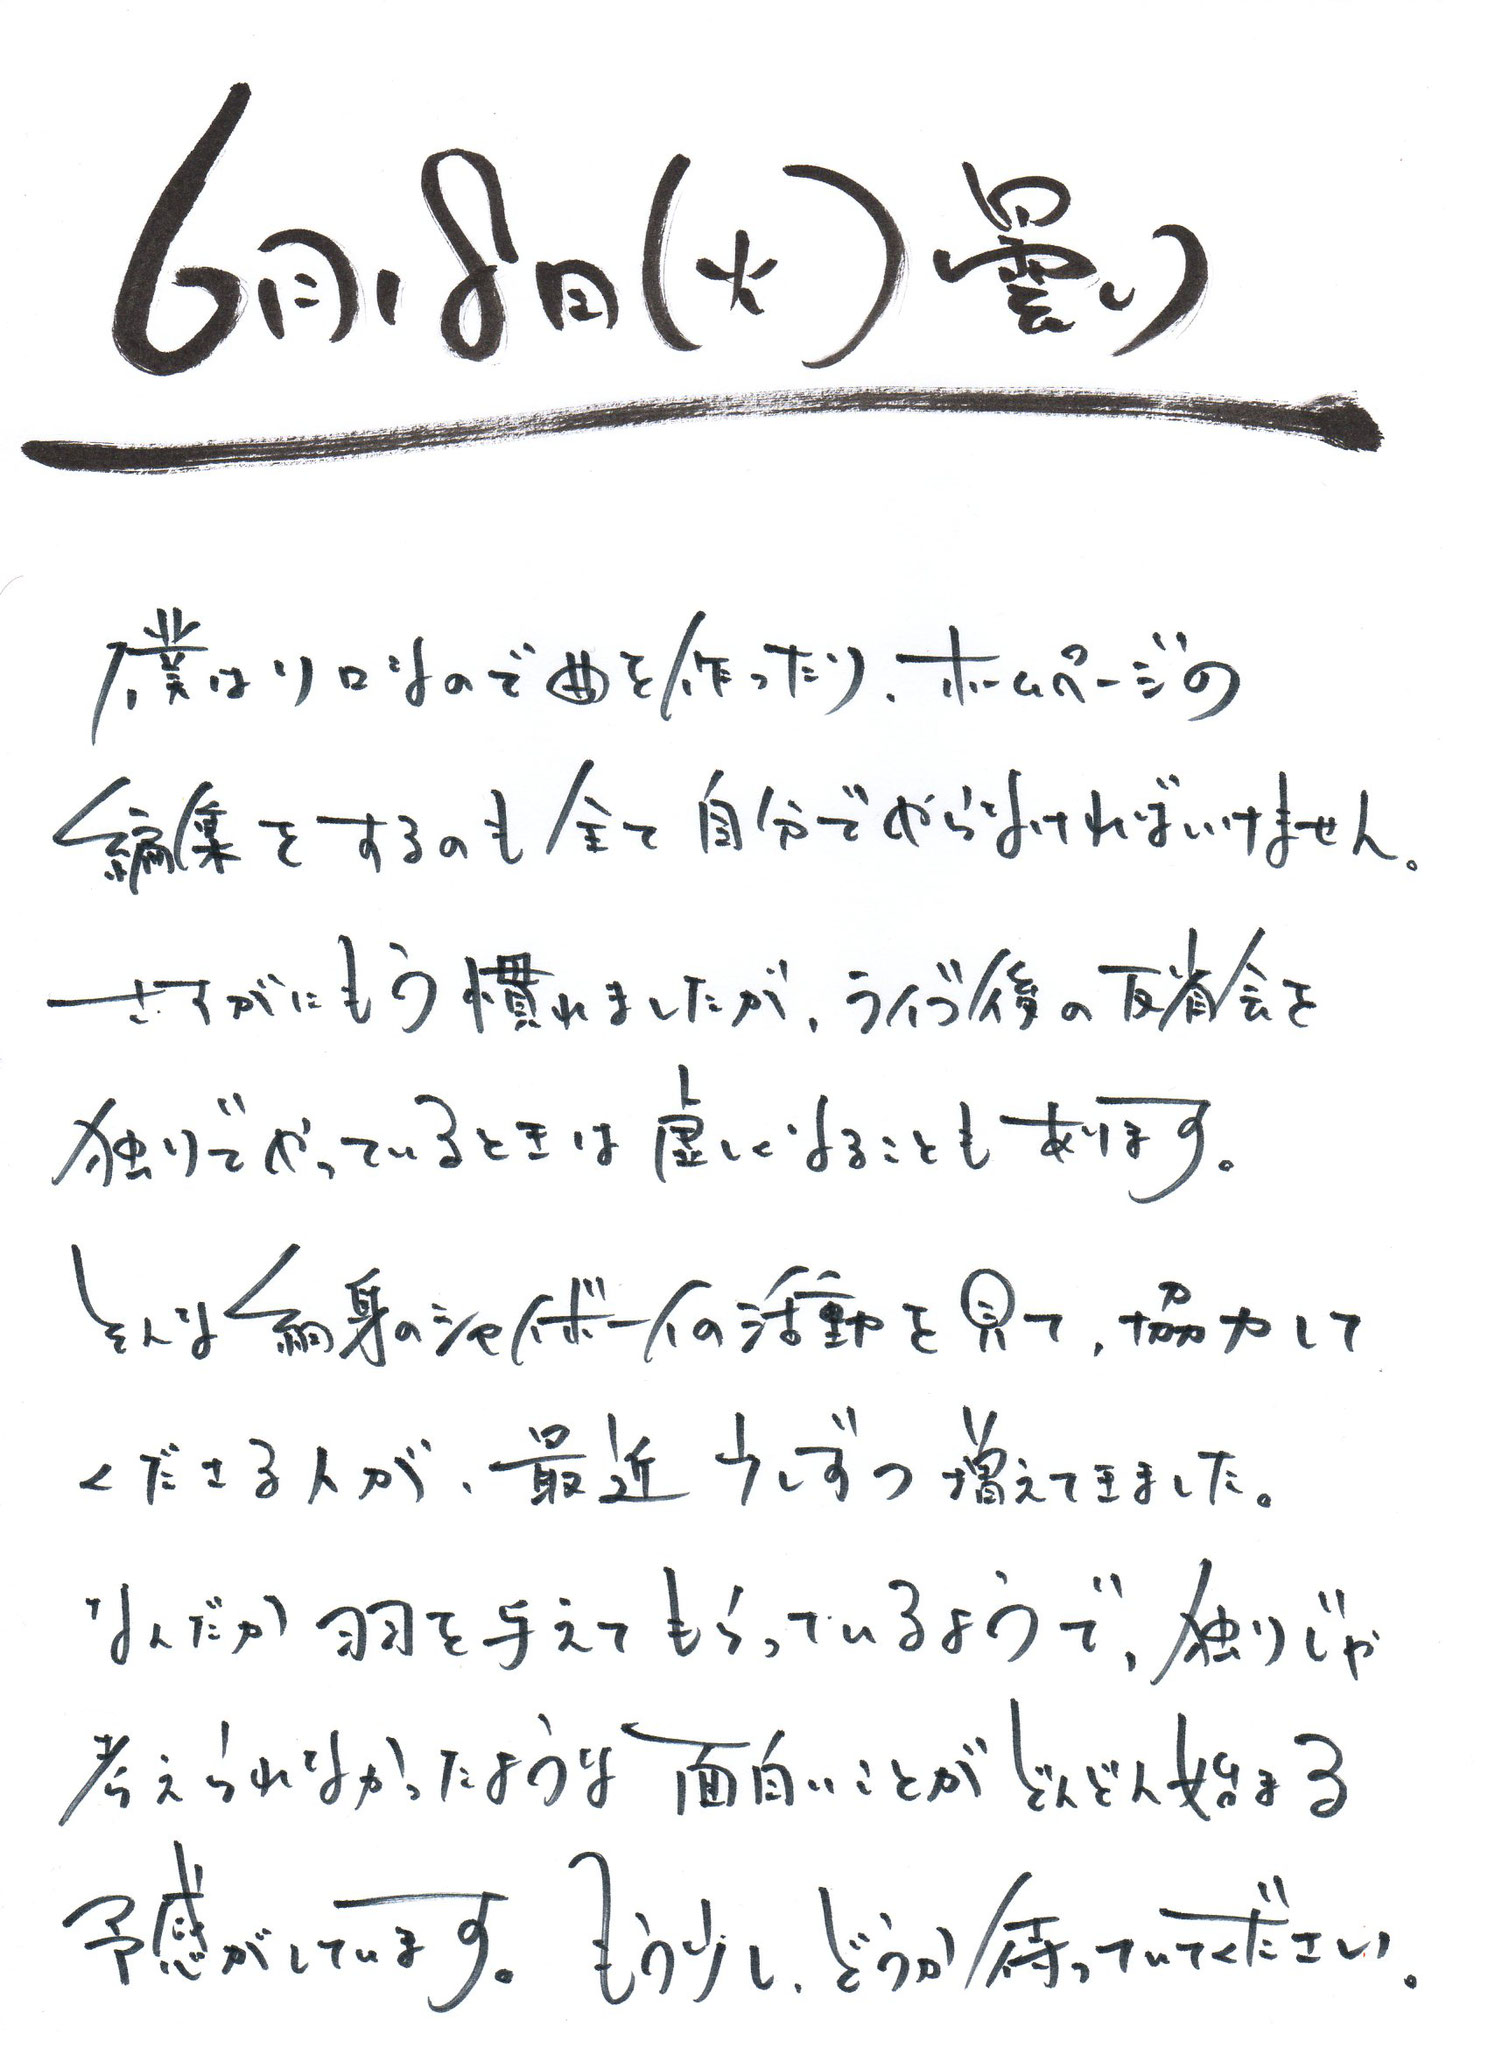 6月18日(火)曇り
僕はソロなので曲を作ったり、ホームページの
編集をするのも全て自分でやらなければいけません。
さすがにもう慣れましたが、ライブ後の反省会を
独りでやっているときは虚しくなることもあります。
そんな細身のシャイボーイの活動を見て、協力して
くださる人が、最近少しずつ増えてきました。
なんだか羽を与えてもらっているようで、独りじゃ
考えられなかったような面白いことがどんどん始まる
予感がしています。もう少し、どうか待っていてください。